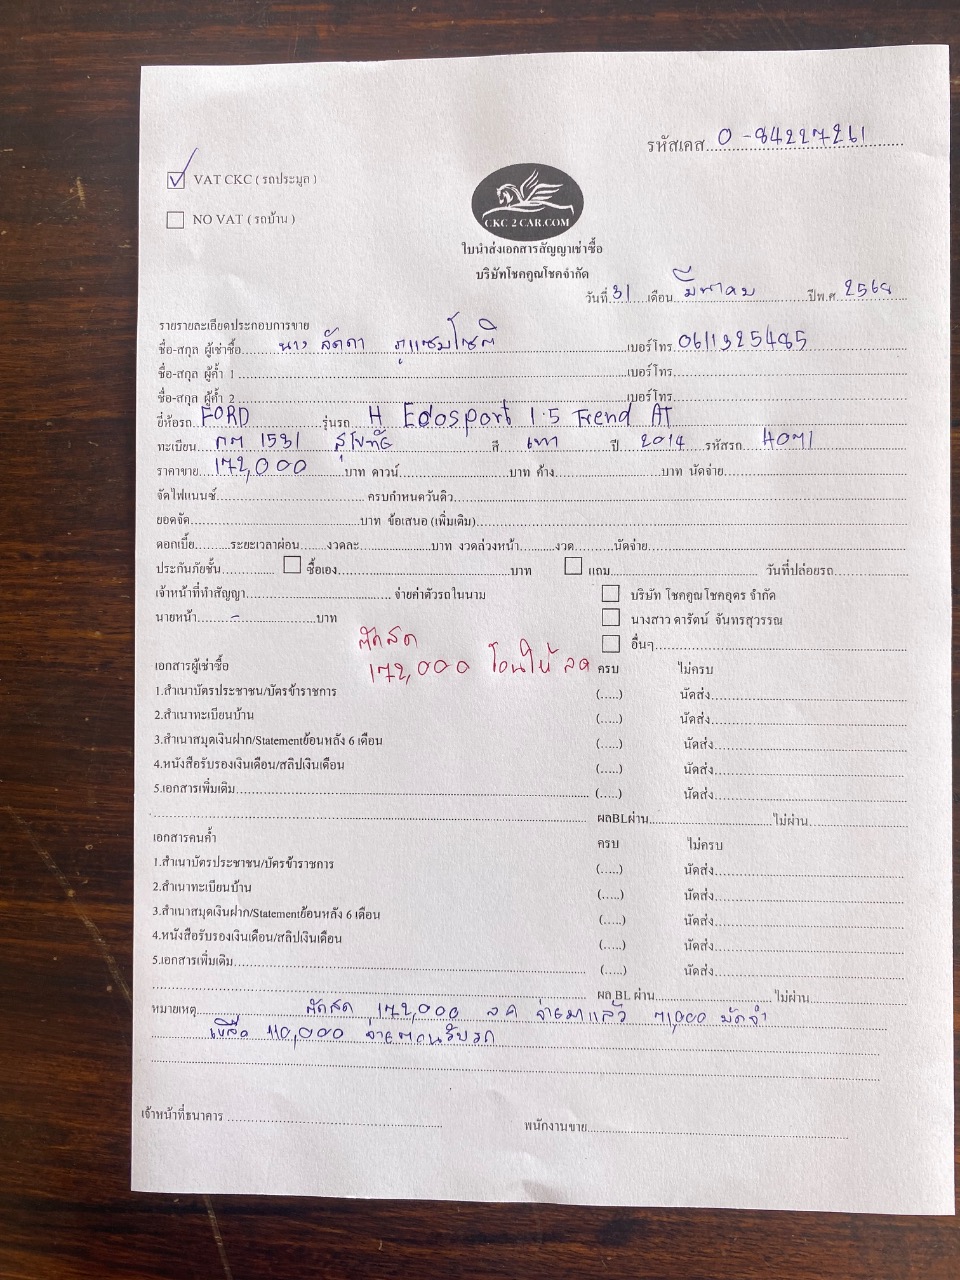 รหัสเคส 0-84227261
VAT CKC ( รถประมูล )
NO VAT ( รถบ้าน )
CKC 2 CAR.COM
ใบนำส่งเอกสารสัญญาเช่าซื้อ
บริษัทโชคคูณโชคจำกัด
วันที่ 31 เดือน มีนาคม ปีพ.ศ. 2568
รายรายละเอียดประกอบการขาย
ชื่อ-สกุล ผู้เช่าซื้อ นาง ลัดดา เบอร์โทร 0611325485
ชื่อ-สกุล ผู้ค้ำ 1 เบอร์โทร
ชื่อ-สกุล ผู้ค้ำ 2 เบอร์โทร
ยี่ห้อรถ FORD รุ่นรถ H Ecosport 1.5 Trend AT
ทะเบียน 1531 สุโขทัย สี เทา ปี 2014 รหัสรถ
ราคาขาย 172,000 บาท ดาวน์ บาท ค้าง บาท นัดจ่าย
จัดไฟแนนซ์ ครบกำหนดวันดิว
ยอดจัด บาท ข้อเสนอ (เพิ่มเติม)
ดอกเบี้ย ระยะเวลาผ่อน งวดละ บาท งวดล่วงหน้า งวด นัดจ่าย
ประกันภัยชั้น ซื้อเอง บาท แถม วันที่ปล่อยรถ
เจ้าหน้าที่ทำสัญญา จ่ายค่าตัวรถในนาม บริษัท โชคคูณโชคอุดร จำกัด
นายหน้า - บาท นางสาว ดารัตน์ จันทรสุวรรณ
อื่นๆ
ตัดสด
172,000 โอนให้ ลค
เอกสารผู้เช่าซื้อ ครบ ไม่ครบ
1.สำเนาบัตรประชาชน/บัตรข้าราชการ (.....) นัดส่ง
2.สำเนาทะเบียนบ้าน (.....) นัดส่ง
3.สำเนาสมุดเงินฝาก/Statementย้อนหลัง 6 เดือน (.....) นัดส่ง
4.หนังสือรับรองเงินเดือน/สลิปเงินเดือน (.....) นัดส่ง
5.เอกสารเพิ่มเติม (.....) นัดส่ง
ผลBLผ่าน ไม่ผ่าน
เอกสารคนค้ำ ครบ ไม่ครบ
1.สำเนาบัตรประชาชน/บัตรข้าราชการ (.....) นัดส่ง
2.สำเนาทะเบียนบ้าน (.....) นัดส่ง
3.สำเนาสมุดเงินฝาก/Statementย้อนหลัง 6 เดือน (.....) นัดส่ง
4.หนังสือรับรองเงินเดือน/สลิปเงินเดือน (.....) นัดส่ง
5.เอกสารเพิ่มเติม (.....) นัดส่ง
ผล BL ผ่าน ไม่ผ่าน
หมายเหตุ ตัดสด 172,000 ลค จ่ายมาแล้ว มัดจำ
เหลือ 110,000 จ่ายตอนรับรถ
เจ้าหน้าที่ธนาคาร พนักงานขาย